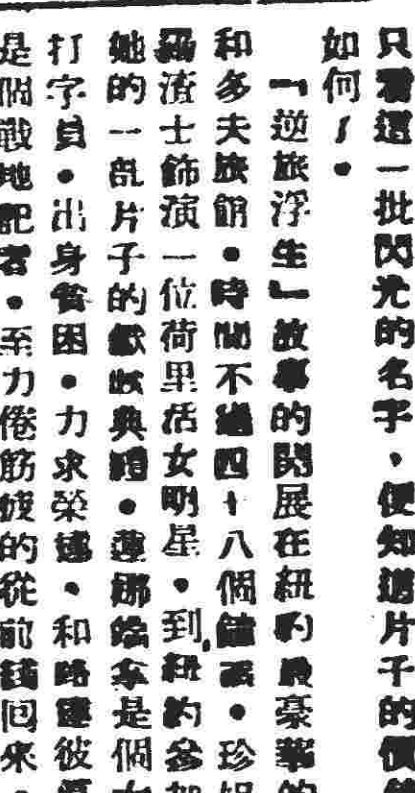 只看這一批閃光的名字、便知道片子的價
如何！。
「逆旅浮生」故事的開展在紐約最豪華的
和多夫旅館。時間不過四十八個鐘頭。珍妮
羅渣士飾演一位荷里活女明星。到紐約參加
她的一部片子的獻映典禮。蓮娜端拿是個女
打字員。出身貧困。力求榮達。和路達彼
是個戰地記者。至力倦筋疲的從前綫回來。